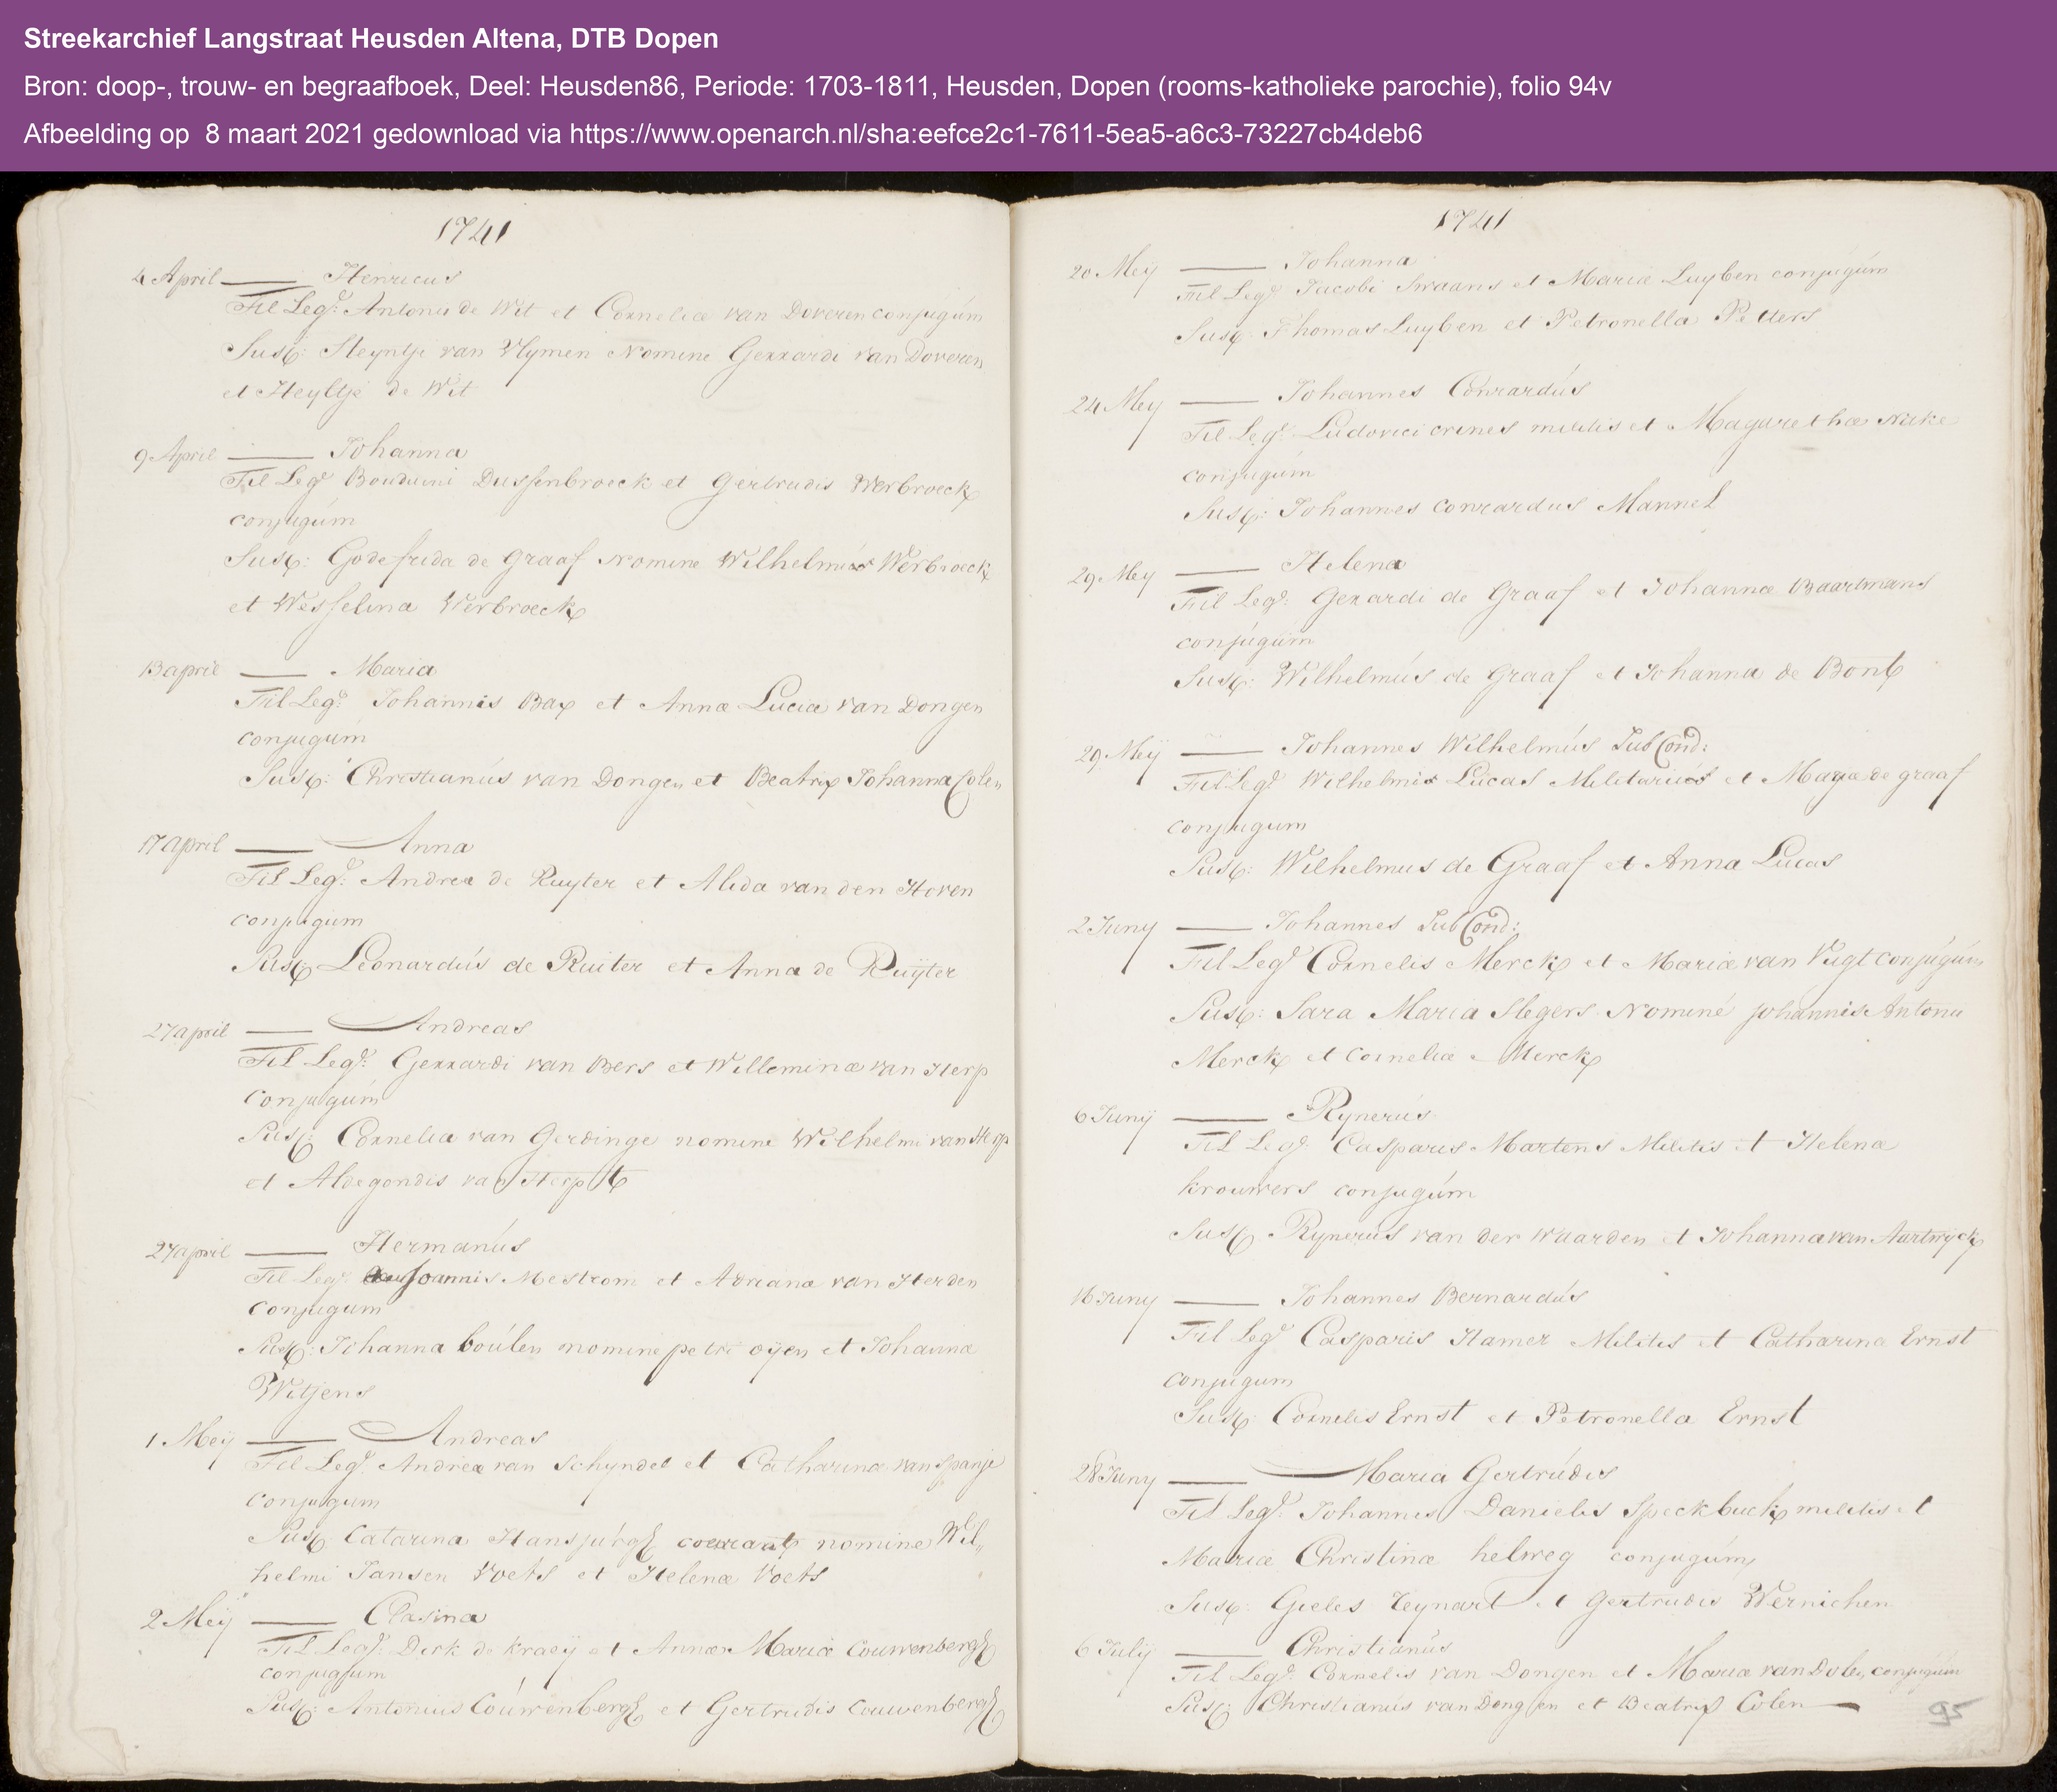 Streekarchief Langstraat Heusden Altena, DTB Dopen
Bron: doop-, trouw- en begraafboek, Deel: Heusden86, Periode: 1703-1811, Heusden, Dopen (rooms-katholieke parochie), folio 94v
Afbeelding op 8 maart 2021 gedownload via https://www.openarch.nl/sha:eefce2c1-7611-5ea5-a6c3-73227cb4deb6
1741
4 April Henricus
Fil Leg: Antonii de Wit et Corneliæ van Doveren conjugúm
Susc: Heyntje van Vlymen Nomine Gerrardi van Doveren
et Heyltje de Wit
9 April Johanna
Fil Leg Bouduini Dussenbroeck et Gertrudis Werbroeck
conjugúm
Susc: Godefrida de Graaf Nomine Wilhelmi Werbroeck
et Wesselina Verbroeck
13 april Maria
Fil Leg: Johannis Bax et Annæ Luciæ van Dongen
conjugúm
Susc: Christianús van Dongen et Beatrix Johanna Colen
17 april Anna
Fil Leg: Andreæ de Ruyter et Alida van den Hoven
conjugum
Susc Leonardús de Ruiter et Anna de Ruÿter
27 april Andreas
Fil Leg: Gerrardi van Bers et Willeminæ van Herp
Conjugúm
Susc: Cornelia van Gerdinge nomine Wilhelmi van Herp
et Aldegondis van Herpt
27 april Hermanús
Fil Leg: Joannis Mestrom et Adrianæ van Herden
Conjugum
Susc: Johanna boúlen nomine petri oÿen et Johannæ
Witjens
1 Meÿ Andreas
Fil Leg: Andreæ van Schyndel et Catharinæ van Spanje
Conjugum
Susc Catarina Hansjúrg nomine Wil,,
helmi Jansen Voets et Helenæ Voets
2 Meÿ Clasina
Fil Leg: Dirk de kraeÿ et Annæ Mariæ Couwenbergh
conjugum
Susc: Antonius Coúwenbergh et Gertrudis Couwenbergh
1741
20 Meÿ Johanna
Fil Leg: Jacobi Swaans et Mariæ Luyben conjúgúm
Susc: Thomas Luyben et Petronella Petters
24 Mey Johannes Conrardús
Fil Leg: Ludovici crines militis et Magarethæ Nuke
conjugúm
Susc: Johannes Conrardus Mannel
29 Mey Helena
Fil Leg: Gerardi de Graaf et Johannæ Baartmans
conjúgúm
Susc: Wilhelmús de Graaf et Johanna de Bont
29 Meÿ Johannes Wilhelmús Sub Cond:
Fil Leg Wilhelmi Lucas et Mariæ de graaf
conjugum
Susc: Wilhelmus de Graaf et Anna Lucas
2 Juny Johannes Sub Cond:
Fil Leg Cornelis Merckx et Mariæ van Vugt conjúgúm
Susc: Sara Maria Slegers Nominé johannis Antonii
Merckx et Corneliæ Merckx
6 Junÿ Rynerús
Fil Leg: Casparis Martens Militis et Helenæ
krouwers conjugúm
Susc Rynerús van der Waarden et Johanna van Aartwyck
16 Juny Johannes Bernardús
Fil Leg Casparis Hamer Militis et Catharina Ernst
conjugum
Susc: Cornelis Ernst et Petronella Ernst
28 Juny Maria Gertrúdis
Fil Leg: Johannes Danielis Speckbuck militis et
Mariæ Christinæ helweg conjugúm
Susc: Gieles Teynart et Gertrudis Wernichen
6 Julÿ Christianús
Fil Leg: Cornelis van Dongen et Mariæ van Dolen conjugúm
Susc: Christianús van Dongen et Beatrix Colen
95